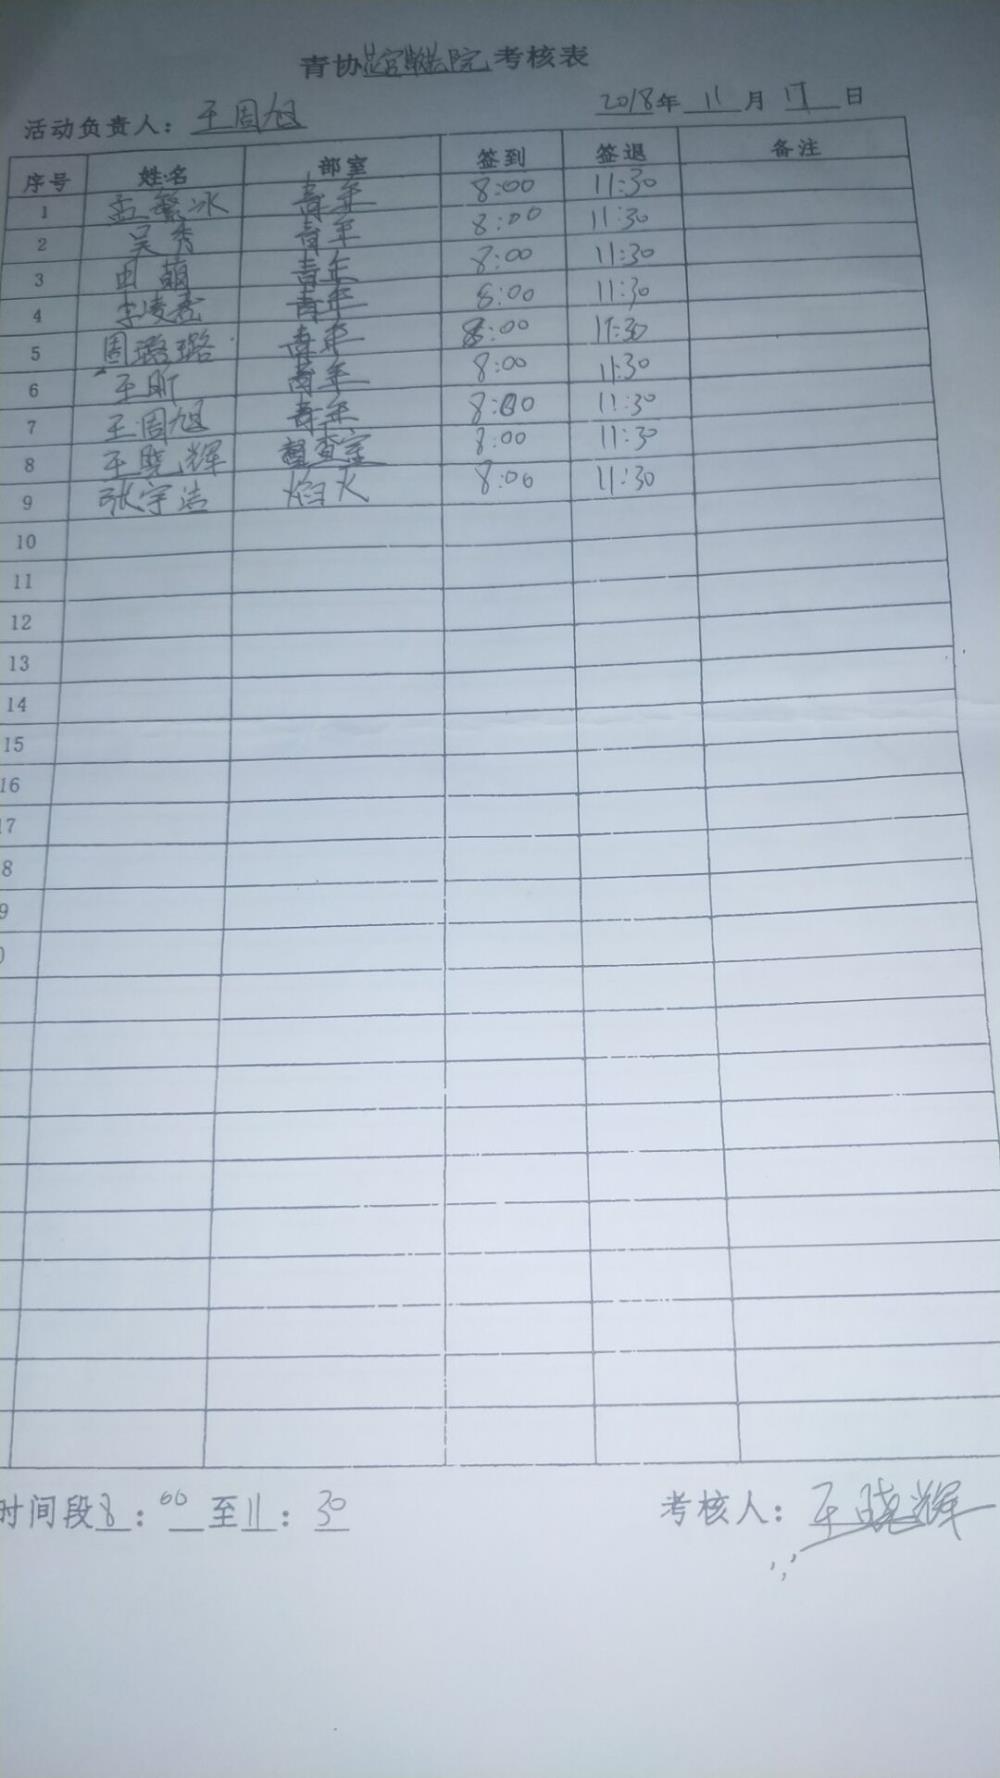 青协 院 考核表
活动负责人：王周旭 2018年 11 月 17 日
序号 姓名 部室 签到 签退 备注
1 孟繁冰 青年 8:00 11:30
2 吴秀 青年 8:00 11:30
3 田萌 青年 8:00 11:30
4 李凌 青年 8:00 11:30
5 周璐璐 青年 8:00 11:30
6 王昕 青年 8:00 11:30
7 王周旭 青年 8:00 11:30
8 王晓辉 督查室 8:00 11:30
9 张宇洁 焰火 8:00 11:30
10
11
12
13
14
15
16
17
8
9
时间段8:00至11:30 考核人：王晓辉